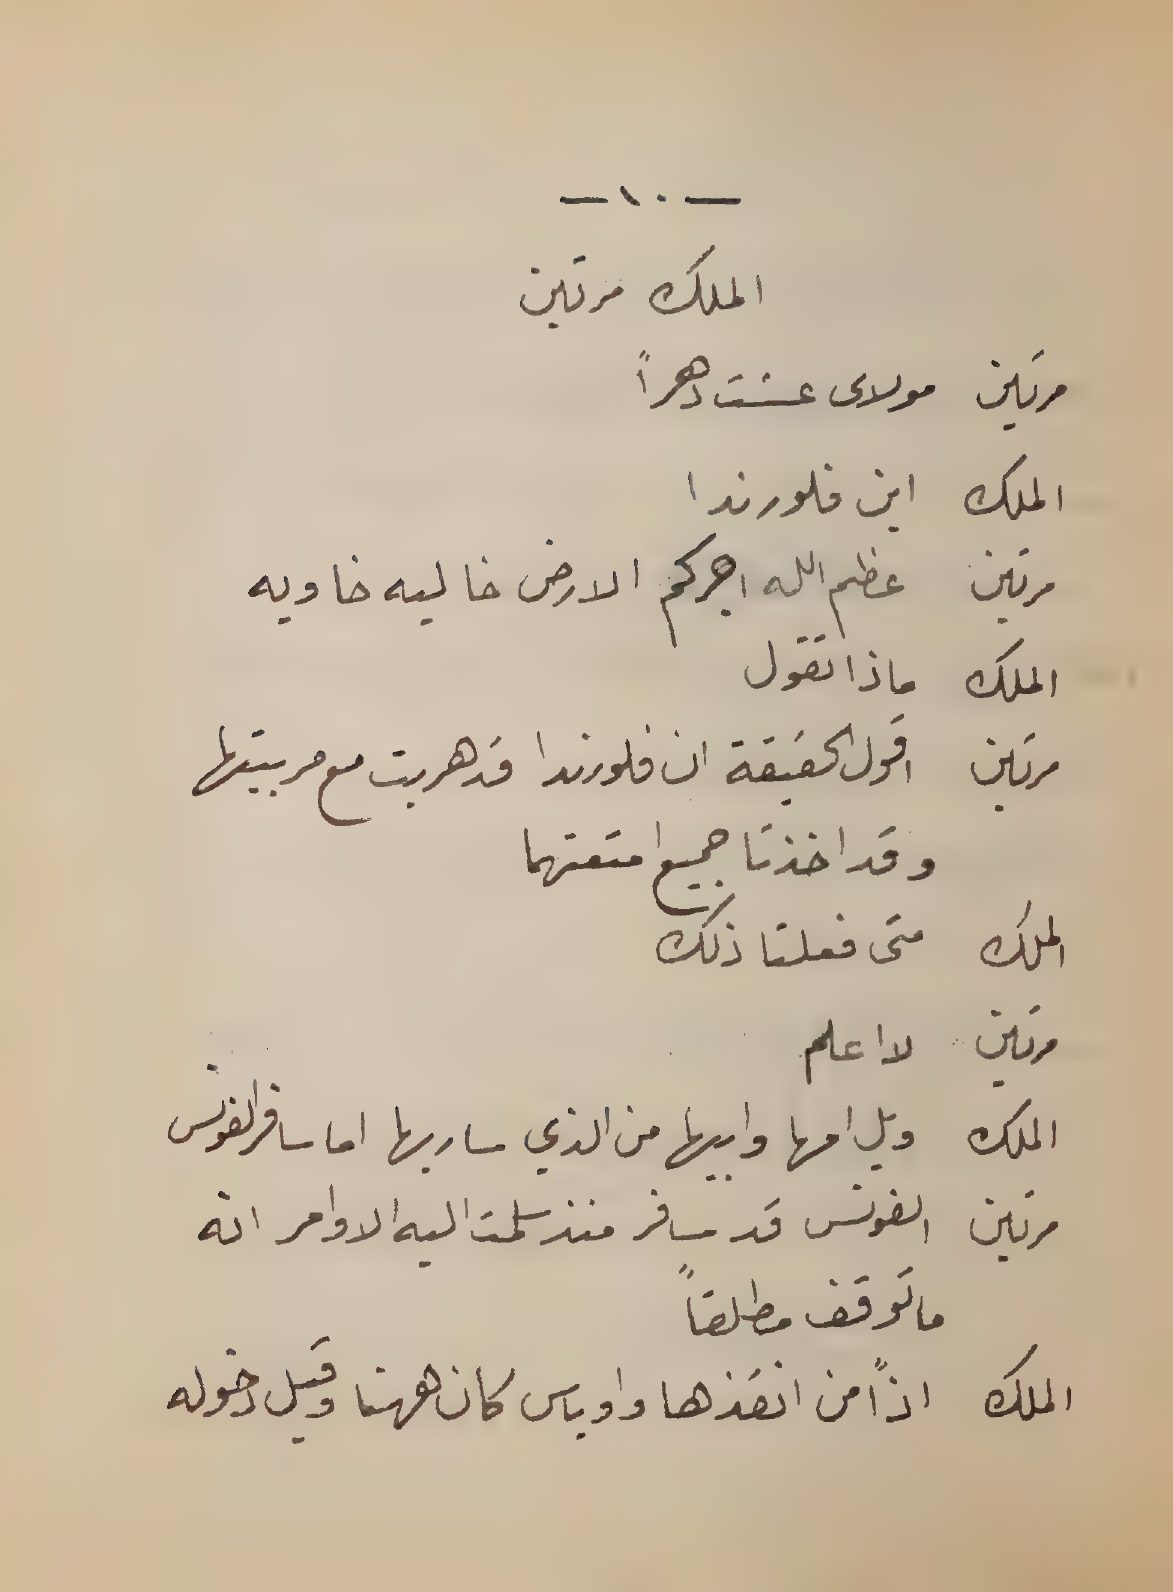 — ١٠ —
الملك مرتين
مرتين مولاى عشت دهراً
الملك اين فلورندا
مرتين عظم الله اجركم الارض خاليه خاويه
الملك ماذا تقول
مرتين اقول الحقيقة ان فلورندا قد هربت مع مربيتها
وقد اخذتا جميع امتعتهما
الملك متى فعلتا ذلك
مرتين لا اعلم
الملك ويل امها وابيها من الذي ساربها اما سافر الفونس
مرتين الفونس قد سافر منذ سلمت اليه الاوامر انه
ماتوقف مطلقاً
الملك اذاً من انقذها واوباس كان ههنا وقبل دخوله